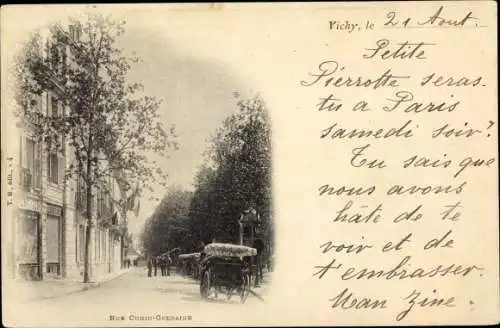 Vichy, le 21 Aout.
Petite
Pierrotte seras-
tu à Paris
samedi soir?
Tu sais que
nous avons
hâte de te
voir et de
t'embrasser
Man Zine.
RUE CUNIN-GRIDAINE